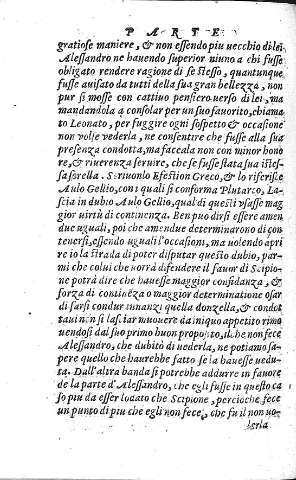 PARTE
gratiose maniere, & non essendo piu uecchio di lei
Alessandro ne hauendo superior niuno a chi fusse
obligato rendere ragione di se stesso, quantunque
fusse auisato da tutti della sua gran bellezza, non
pur si mosse con cattiuo pensiero uerso di lei, ma
mandandola a consolar per un suo fauorito, chiama
to Leonato, per fuggire ogni sospetto & occasione
non volse vederla, ne consentire che fusse alla sua
presenza condotta, ma faceala non con minor hono
re, & riuerenza seruire, che se fusse stata sua istes-
sa sorella. Scriuonlo Efestion Greco, & lo riferisce
Aulo Gellio, con i quali si conforma Plutarco. La-
scia in dubio Aulo Gellio, qual di questi vsasse mag
gior uirtù di continenza. Ben può dirsi essere amen
due uguali, poi che amendue determinarono di con
tenersi, essendo uguali l'occasioni, ma uolendo apri
re io la strada di poter disputar questo dubio, par-
mi che colui che uorrà difendere il fauor di Scipio-
ne potrà dire che hauesse maggior confidanza, &
forza di continẽza o maggior determinatione osar
di farsi condur innanzi quella donzella, & condot
taui non si lasciar mouere da iniquo appetito rimo
uendosi dal suo primo buon proposito, il che non fece
Alessandro, che dubitò di uederla, ne potiamo sa-
pere quello che haurebbe fatto se la hauesse uedu-
ta. Dall'altra banda si potrebbe addurre in fauore
de la parte d'Alessandro, che egli fusse in questo ca
so piu da esser lodato che Scipione, percioche fece
un punto di piu che egli non fece, che fu il non uo-
lerla